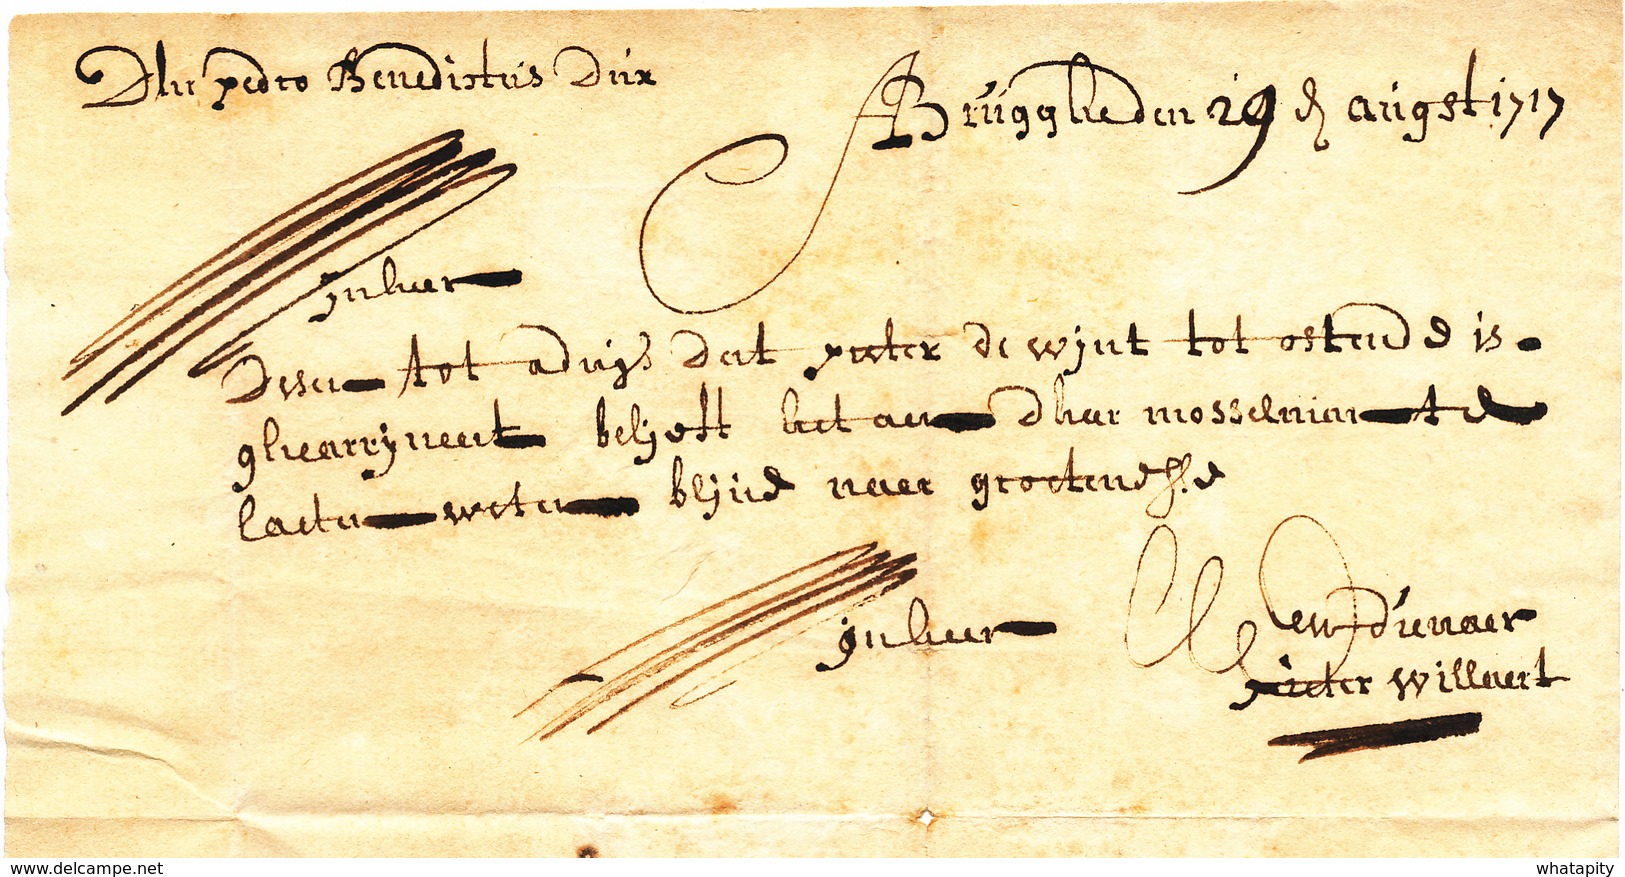 Dhr pedro Benedictus Dux
Brugghe den 29 augst 1717
ijnheer
Desen tot advijs dat pieter de wijnt tot ostende is
ghearryveert belijeft het aen Dheer mosselman te
laeten weten blijve naer groetenesse
ijnheer
uw dienaer
pieter willaert
whatapity